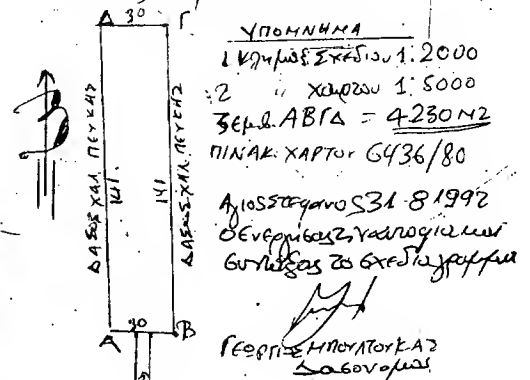 Δ 30 Γ
ΔΑΣΟΣ ΧΑΛ. ΠΕΥΚΗΣ
141
141
ΔΑΣΟΣ ΧΑΛ. ΠΕΥΚΗΣ
Α 30 Β
Β
ΥΠΟΜΝΗΜΑ
1 Κλημαξ Σχεδίου 1:2000
2 " Χαρτου 1:5000
3 Εμβ. ΑΒΓΔ = 4.230 Μ2
ΠΙΝΑΚ. ΧΑΡΤΟΥ 6436/80
Αγιος Στεφανος 31-8-1992
Ο Ενεργησας την αυτοψια και
συνταξας το σχεδιαγραμμα
ΓΕΩΡΓΙΟΣ ΜΠΟΥΛΤΟΥΚΑΣ
Δασονομος